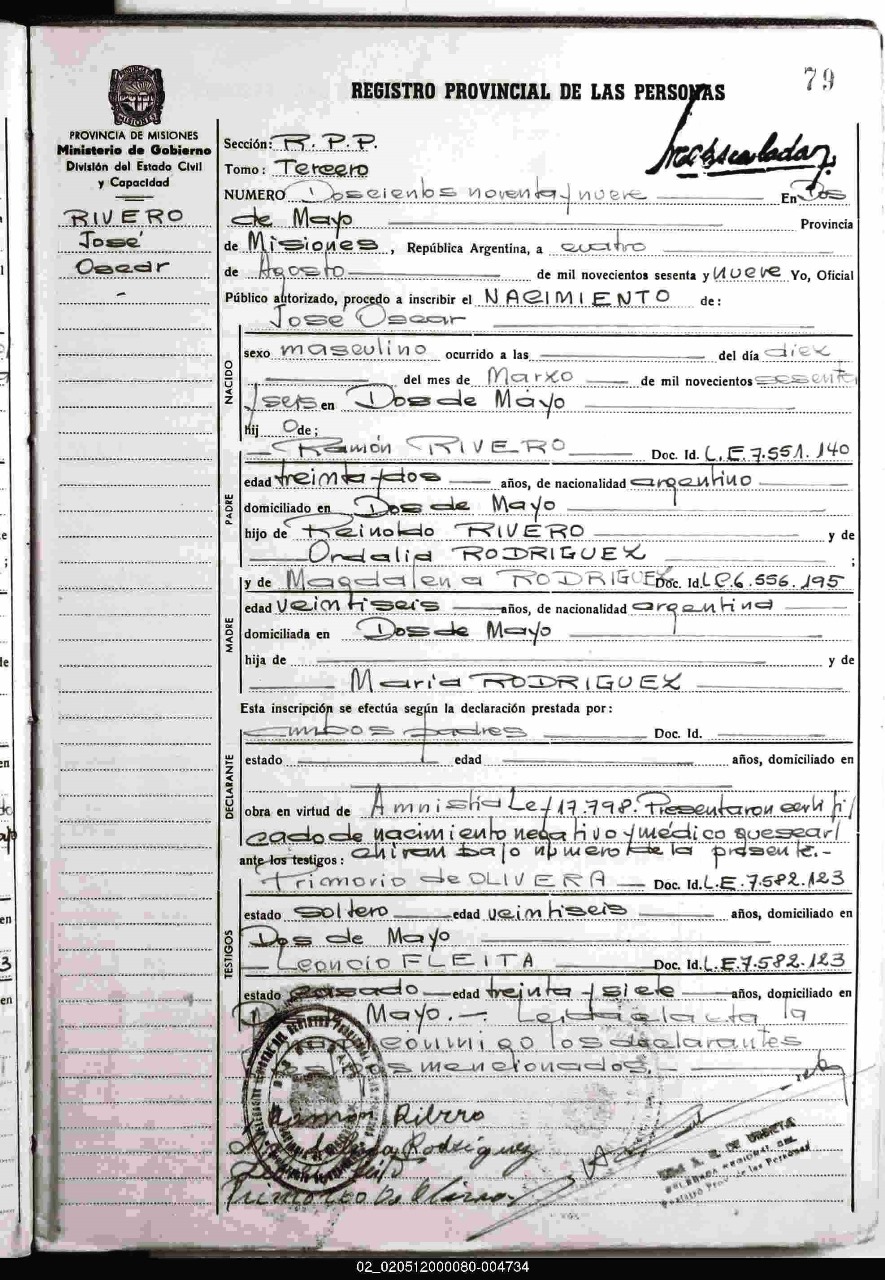 79
REGISTRO PROVINCIAL DE LAS PERSONAS
PROVINCIA DE MISIONES
Ministerio de Gobierno
División del Estado Civil
y Capacidad
RIVERO
José
Oscar
Sección: R.P.P.
Tomo: Tercero
NUMERO Doscientos noventa y nueve En Dos
de Mayo Provincia
de Misiones, República Argentina, a cuatro
de Agosto de mil novecientos sesenta y nueve Yo, Oficial
Público autorizado, procedo a inscribir el NACIMIENTO de:
José Oscar
NACIDO
sexo masculino ocurrido a las del día diez
del mes de Marzo de mil novecientos sesenta
y seis en Dos de Mayo
hijo de;
Ramón RIVERO Doc. Id. L.E. 7.551.140
PADRE
edad treinta y dos años, de nacionalidad argentino
domiciliado en Dos de Mayo
hijo de Reinoldo RIVERO y de
Ordalia RODRIGUEZ ;
MADRE
y de Magdalena RODRIGUEZ Doc. Id. L.C. 6.556.195
edad veintiseis años, de nacionalidad argentina
domiciliada en Dos de Mayo
hija de y de
Maria RODRIGUEZ
Esta inscripción se efectúa según la declaración prestada por:
DECLARANTE
ambos padres Doc. Id.
estado edad años, domiciliado en
obra en virtud de Amnistia Ley 17.798. Presentaron certifi
cado de nacimiento negativo y médico que se ar
chivan bajo número de la presente.-
ante los testigos:
TESTIGOS
Primorio de OLIVERA Doc. Id. L.E. 7.582.123
estado soltero edad veintiseis años, domiciliado en
Dos de Mayo
Leoncio FLEITA Doc. Id. L.E. 7.582.123
estado casado edad treinta y siete años, domiciliado en
Mayo.- Leida el acta la
conmigo los declarantes
mencionados.-
Ramon Ribero
Rodriguez
de
02_020512000080-004734